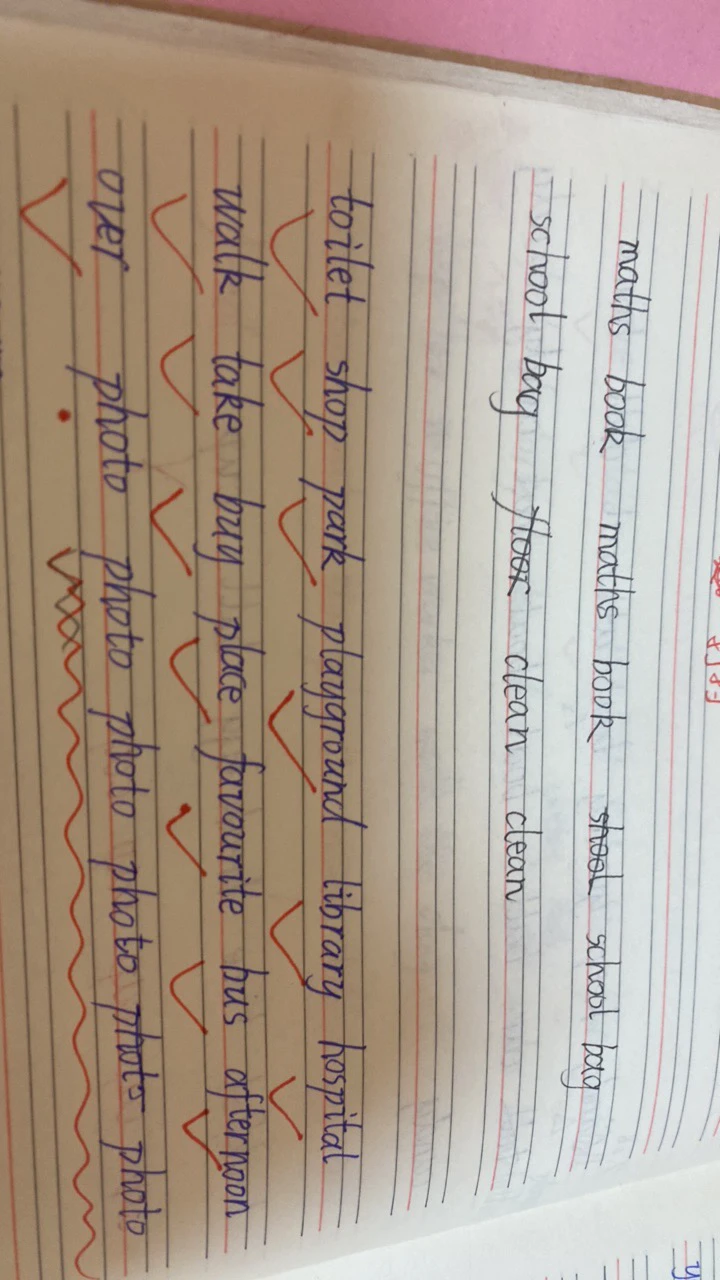 maths book maths book shool school bag
school bag floor clean clean
toilet shop park playground library hospital
walk take buy place favourite bus afternoon
over photo photo photo photo phots photo